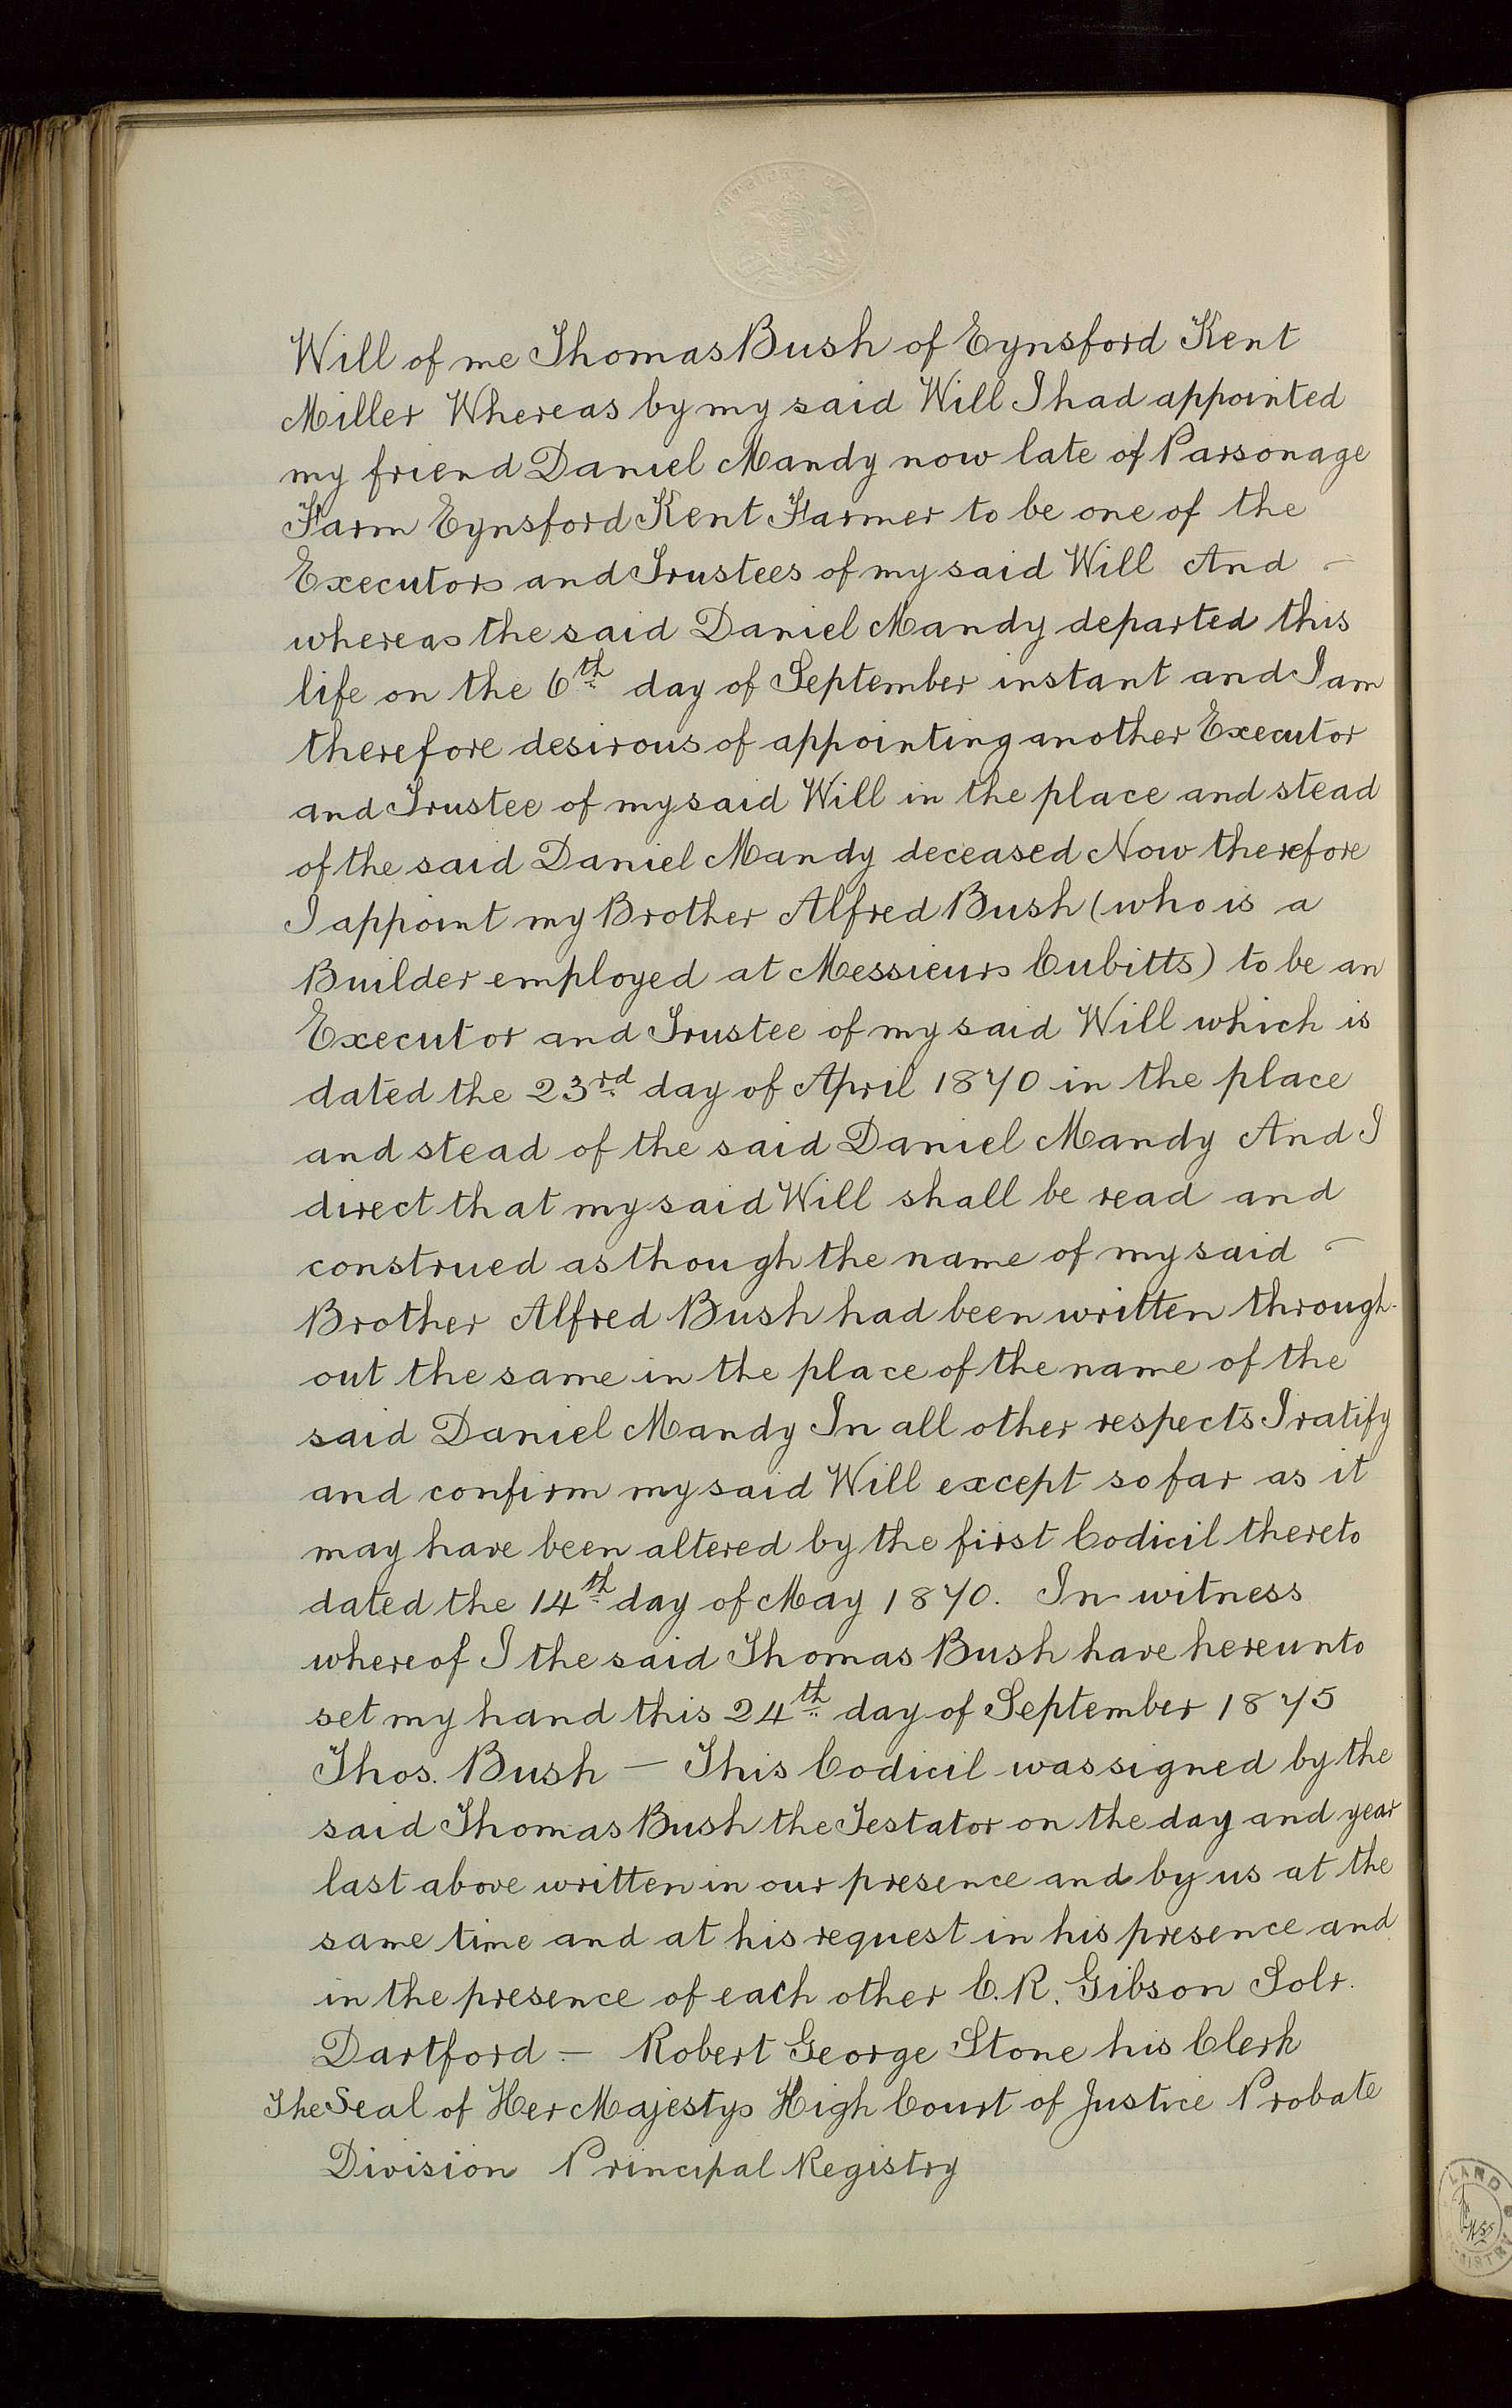 Will of me Thomas Bush of Eynsford Kent
Miller Whereas by my said Will I had appointed
my friend Daniel Mandy now late of Parsonage
Farm Eynsford Kent Farmer to be one of the
Executors and Trustees of my said Will And —
whereas the said Daniel Mandy departed this
life on the 6th day of September instant and I am
therefore desirous of appointing another Executor
and Trustee of my said Will in the place and stead
of the said Daniel Mandy deceased Now therefore
I appoint my Brother Alfred Bush (who is a
Builder employed at Messieurs Cubitts) to be an
Executor and Trustee of my said Will which is
dated the 23rd day of April 1870 in the place
and stead of the said Daniel Mandy And I
direct that my said Will shall be read and
construed as though the name of my said —
Brother Alfred Bush had been written through-
out the same in the place of the name of the
said Daniel Mandy In all other respects I ratify
and confirm my said Will except so far as it
may have been altered by the first Codicil thereto
dated the 14th day of May 1870. In witness
whereof I the said Thomas Bush have hereunto
set my hand this 24th day of September 1875
Thos. Bush — This Codicil was signed by the
said Thomas Bush the Testator on the day and year
last above written in our presence and by us at the
same time and at his request in his presence and
in the presence of each other C. R. Gibson Solr.
Dartford — Robert George Stone his Clerk
The Seal of Her Majestys High Court of Justice Probate
Division Principal Registry
LAND REGISTRY